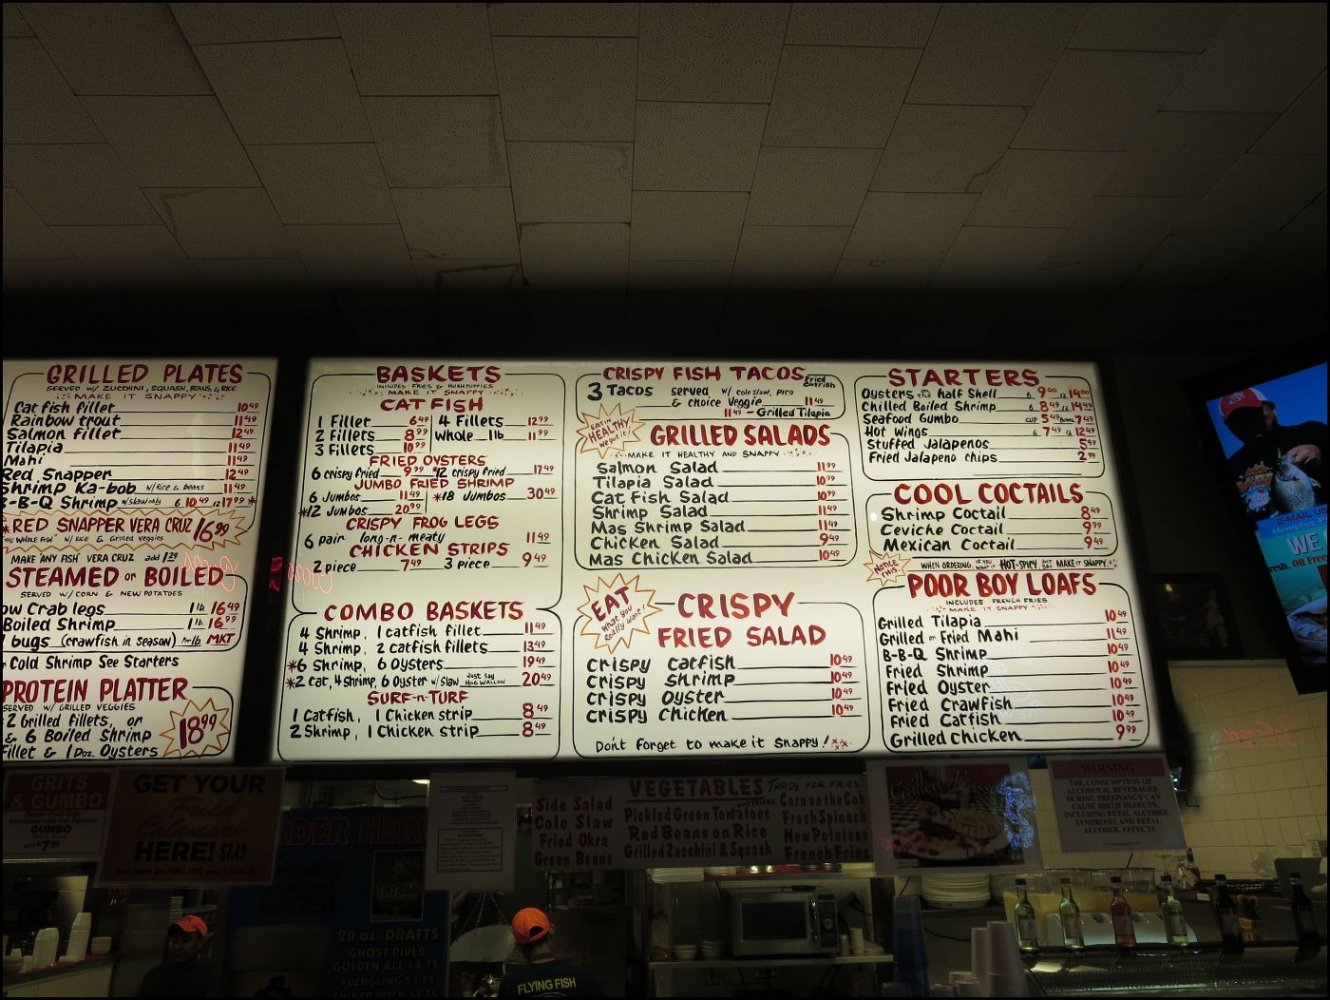 GRILLED PLATES
SERVED W/ ZUCCHINI, SQUASH, BEANS, & RICE
MAKE IT SNAPPY
Cat fish fillet 10 49
Rainbow trout 11 49
Salmon fillet 12 49
Tilapia 11 49
Mahi 11 49
Red Snapper 12 49
Shrimp Ka-bob W/ Rice & Beans 11 49
B-Q Shrimp W/ slaw only 6 10 49 12 17 99 *
RED SNAPPER VERA CRUZ 16 99
WHOLE FISH" W/ RICE & Grilled Veggies
MAKE ANY FISH VERA CRUZ add 1 29
STEAMED or BOILED
SERVED W/ CORN & NEW POTATOES
ow Crab legs 1 lb 16 49
Boiled Shrimp 1 lb 16 99
bugs (crawfish in season) lb MKT
Cold Shrimp See Starters
PROTEIN PLATTER
SERVED W/ GRILLED VEGGIES
2 Grilled fillets, or
& 6 Boiled Shrimp
fillet & 1 Doz. Oysters
18 99
BASKETS
INCLUDES FRIES & HUSHPUPPIES
MAKE IT SNAPPY
CAT FISH
1 Fillet 6 49 4 Fillets 12 99
2 Fillets 8 99 Whole 1 lb 11 99
3 Fillets 10 99
FRIED OYSTERS
6 crispy fried 9 99 *12 crispy fried 17 49
JUMBO FRIED SHRIMP
6 Jumbos 11 49 *18 Jumbos 30 49
*12 Jumbos 20 99
CRISPY FROG LEGS
6 pair long-n-meaty 11 49
CHICKEN STRIPS
2 piece 7 49 3 piece 9 49
COMBO BASKETS
4 Shrimp, 1 catfish fillet 11 49
4 Shrimp, 2 catfish fillets 13 49
*6 Shrimp, 6 Oysters 19 49
*2 cat, 4 shrimp, 6 Oyster w/ slaw Just Say HOG WALLOW 20 49
SURF-n-TURF
1 Catfish, 1 Chicken strip 8 49
2 Shrimp, 1 Chicken strip 8 49
CRISPY FISH TACOS
3 Tacos served W/ cole slaw, pico Fried Catfish
& choice Veggie 11 49
11 49 - Grilled Tilapia
EATIN HEALTHY
We got it
GRILLED SALADS
MAKE IT HEALTHY AND SNAPPY
Salmon Salad 11 99
Tilapia Salad 10 99
Cat Fish Salad 10 99
Shrimp Salad 11 49
Mas Shrimp Salad 11 49
Chicken Salad 9 49
Mas Chicken Salad 10 49
EAT
What you
Really want!
CRISPY
FRIED SALAD
CRISPY Catfish 10 49
CRISPY Shrimp 10 49
CRISPY Oyster 10 49
CRISPY Chicken 10 49
Don't forget to make it Snappy!
STARTERS
Oysters half Shell 6 9 00 12 14 00
Chilled Boiled Shrimp 6 8 49 12 14 99
Seafood Gumbo CUP 5 49 BOWL 7 49
Hot Wings 6 7 49 12 12 49
Stuffed Jalapenos 5 99
Fried Jalapeno chips 2 99
COOL COCTAILS
Shrimp Coctail 8 49
Ceviche Coctail 9 99
Mexican Coctail 9 49
NOTICE THIS
WHEN ORDERING IF YOU WANT IT HOT-SPICY JUST SAY MAKE IT SNAPPY
POOR BOY LOAFS
INCLUDES FRENCH FRIES
MAKE IT SNAPPY
Grilled Tilapia 10 49
Grilled or Fried Mahi 11 49
B-B-Q Shrimp 10 49
Fried Shrimp 10 49
Fried Oyster 10 49
Fried Crawfish 10 49
Fried Catfish 10 49
Grilled Chicken 9 99
GRITS
& GUMBO
GUMBO
$7 99
GET YOUR
HERE! $7.49
VEGETABLES TRADE FOR FRIES
Side Salad
Cole Slaw
Fried Okra
Green Beans
Pickled Green Tomatoes
Red Beans on Rice
Grilled Zucchini & Squash
Corn on the Cob
Fresh Spinach
New Potatoes
French Fries
WARNING
THE CONSUMPTION OF
ALCOHOLIC BEVERAGES
DURING PREGNANCY CAN
CAUSE BIRTH DEFECTS,
INCLUDING FETAL ALCOHOL
SYNDROME AND FETAL
ALCOHOL EFFECTS
20 oz. DRAFTS
GHOST RIVER
GOLDEN ALE $4.75
YUENGLING $3.75
FLYING FISH
WE